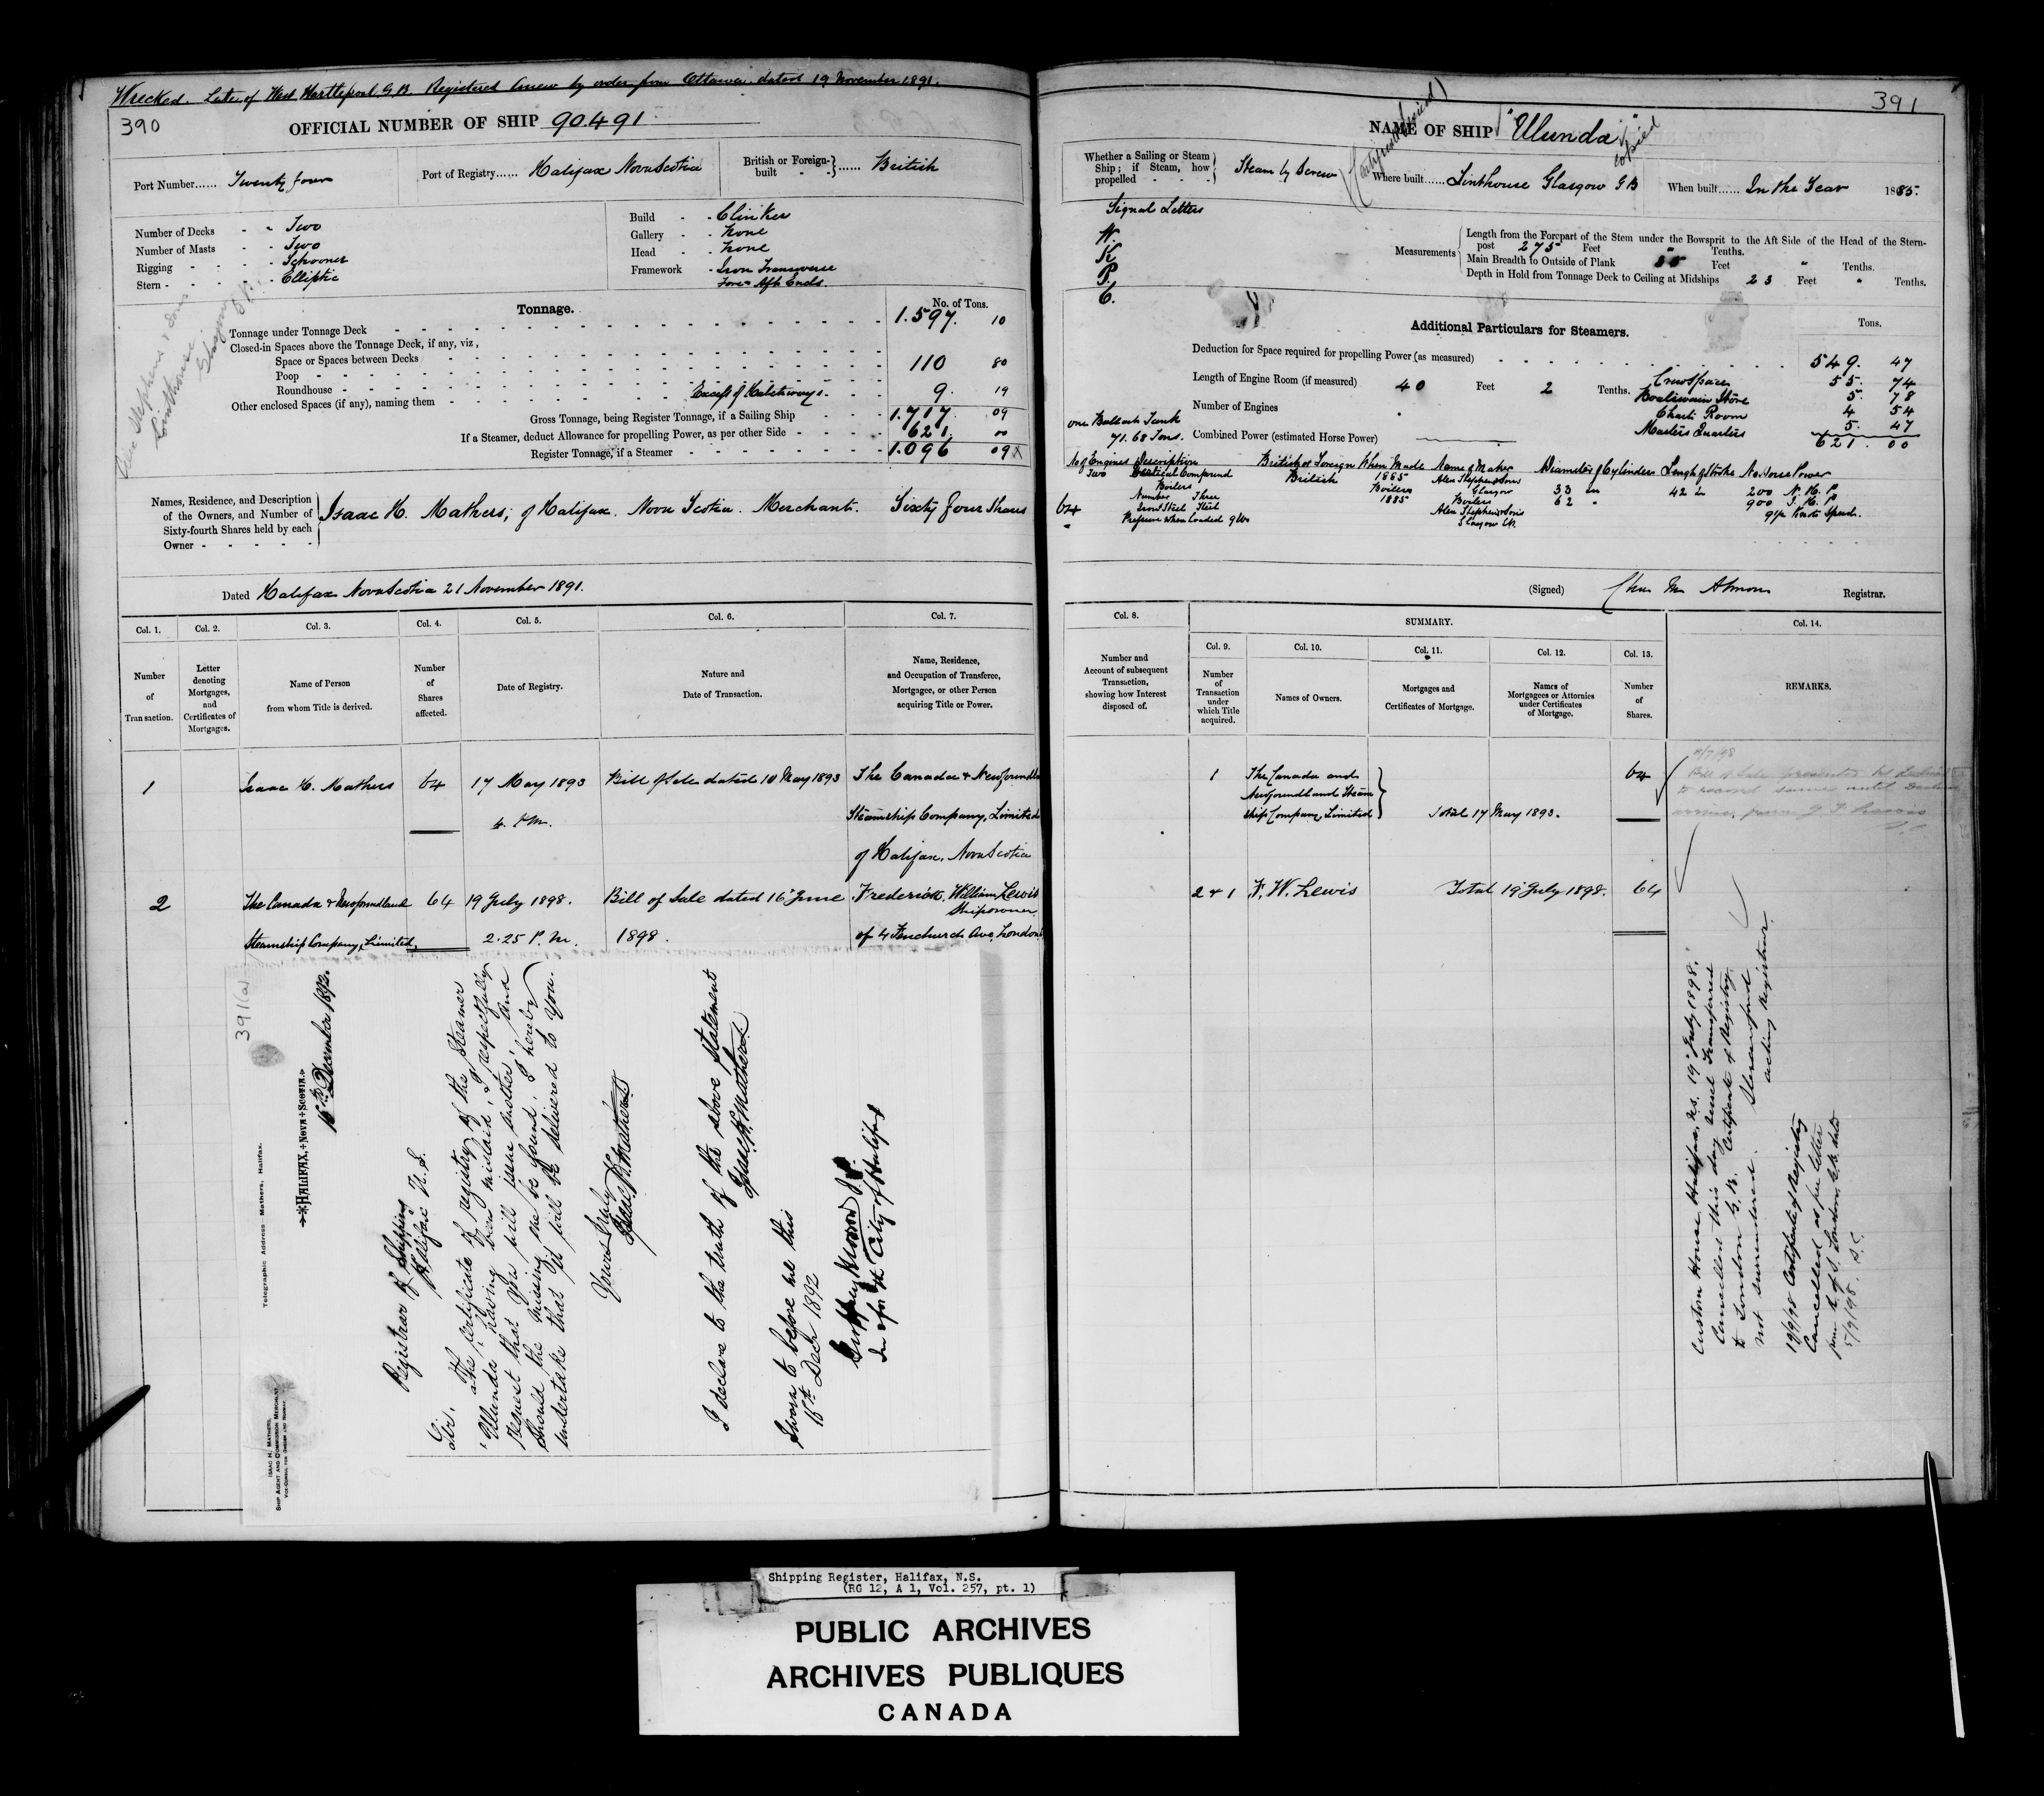 Wrecked. Late of West Hartlepool G.B. Registered Anew by order from Ottawa dated 19 November 1891.
390
OFFICIAL NUMBER OF SHIP 90.491
Port Number...... Twenty four
Port of Registry...... Halifax Nova Scotia
British or Foreign-built ...... British
Number of Decks - - Two
Number of Masts - - Two
Rigging - - - - Schooner
Stern - - - - Elliptic
Build - - Clinker
Gallery - - None
Head - - None
Framework - Iron Transverse
Fore & Aft Ends.
Alex Stephens & Sons
Linthouse
Glasgow
Tonnage.
No. of Tons.
Tonnage under Tonnage Deck 1.597. 10
Closed-in Spaces above the Tonnage Deck, if any, viz.,
Space or Spaces between Decks
Poop 110 80
Roundhouse
Other enclosed Spaces (if any), naming them Excess of Hatchways. 9. 19
Gross Tonnage, being Register Tonnage, if a Sailing Ship 1.717. 09
If a Steamer, deduct Allowance for propelling Power, as per other Side 621. 00
Register Tonnage, if a Steamer 1.096 09
Names, Residence, and Description
of the Owners, and Number of
Sixty-fourth Shares held by each
Owner
Isaac H. Mathers, of Halifax. Nova Scotia. Merchant. Sixty four Shares
Dated Halifax Nova Scotia 21 November 1891.
Col. 1. Col. 2. Col. 3. Col. 4. Col. 5. Col. 6. Col. 7.
Number of Transaction.
Letter denoting Mortgages, and Certificates of Mortgages.
Name of Person from whom Title is derived.
Number of Shares affected.
Date of Registry.
Nature and Date of Transaction.
Name, Residence, and Occupation of Transferee, Mortgagee, or other Person acquiring Title or Power.
1 Isaac H. Mathers 64 17 May 1893 Bill of Sale dated 10 May 1893 The Canada & Newfoundla
4. P.M. Steamship Company, Limited
of Halifax, Nova Scotia
2 The Canada & Newfoundland 64 19 July 1898. Bill of Sale dated 16 June Frederick William Lewis
Shipowner
Steamship Company, Limited, 2.25 P.M. 1898. of 4 Fenchurch Ave, London
391(a)
Telegraphic Address Mathers, Halifax.
ISAAC H. MATHERS,
SHIP AGENT AND COMMISSION MERCHANT
VICE-CONSUL FOR SWEDEN AND NORWAY
HALIFAX, NOVA SCOTIA
16th December 1892.
Registrar of Shipping
Halifax N.S.
Sir,
The Certificate of registry of the Steamer
'Ulunda' having been mislaid, I respectfully
request that you will issue another, and
should the missing one be found, I hereby
undertake that it will be delivered to you.
Yours truly
Isaac H. Mathers
I declare to the truth of the above statement
Isaac H. Mathers
Sworn to before me this
16th Decr 1892
J.P.
In & for the City of Halifax
391
NAME OF SHIP "Ulunda"
copied
Whether a Sailing or Steam Ship; if Steam, how propelled Steam by Screw
Where built...... Linthouse Glasgow G B
When built...... In the Year 1885.
Signal Letters
W.
K.
P.
C.
Measurements
Length from the Forepart of the Stem under the Bowsprit to the Aft Side of the Head of the Stern-
post 275 Feet " Tenths.
Main Breadth to Outside of Plank 35 Feet " Tenths.
Depth in Hold from Tonnage Deck to Ceiling at Midships 23 Feet " Tenths.
Additional Particulars for Steamers.
Tons.
Deduction for Space required for propelling Power (as measured) 549. 47
Length of Engine Room (if measured) 40 Feet 2 Tenths. Crew Space 55. 74
Boatswain Store 5. 78
Number of Engines Chart Room 4 54
one Ballast Tank
71.68 Tons. Combined Power (estimated Horse Power) Masters Quarters 5. 47
621. 00
No of Engines Description British or Foreign When Made Name of Maker Diameter of Cylinders Length of Stroke No. Horse Power
Two Vertical Compound British 1885 Alex Stephen & Sons Glasgow 33 in 42 in 200 N.H.P
Boilers Boilers Boilers 62 " 900 I.H.P
Number Three 1885 Alex Stephen & Sons 9½ Knots Speed.
Iron or Steel Steel Glasgow
Pressure when loaded 9 lbs
64
(Signed) Chas M Almon Registrar.
Col. 8. SUMMARY. Col. 14.
Col. 9. Col. 10. Col. 11. Col. 12. Col. 13.
Number and Account of subsequent Transaction, showing how Interest disposed of.
Number of Transaction under which Title acquired.
Names of Owners.
Mortgages and Certificates of Mortgage.
Names of Mortgagees or Attornies under Certificates of Mortgage.
Number of Shares.
REMARKS.
1 The Canada and 64
Newfoundland Steam
ship Company, Limited Total 17 May 1893.
Bill of Sale presented
to record same until
2 & 1 F. W. Lewis Total 19 July 1898. 64
Custom House Halifax, N.S. 19 July 1898.
Cancelled this day Vessel transferred
to London G.B. Certificate of Registry
not surrendered.
acting Registrar.
19/9/98 Certificate of Registry
Cancelled as per letter
from R. of S. London G.B. dated
5/9/98.
Shipping Register, Halifax, N.S.
(RG 12, A 1, Vol. 257, pt. 1)
PUBLIC ARCHIVES
ARCHIVES PUBLIQUES
CANADA